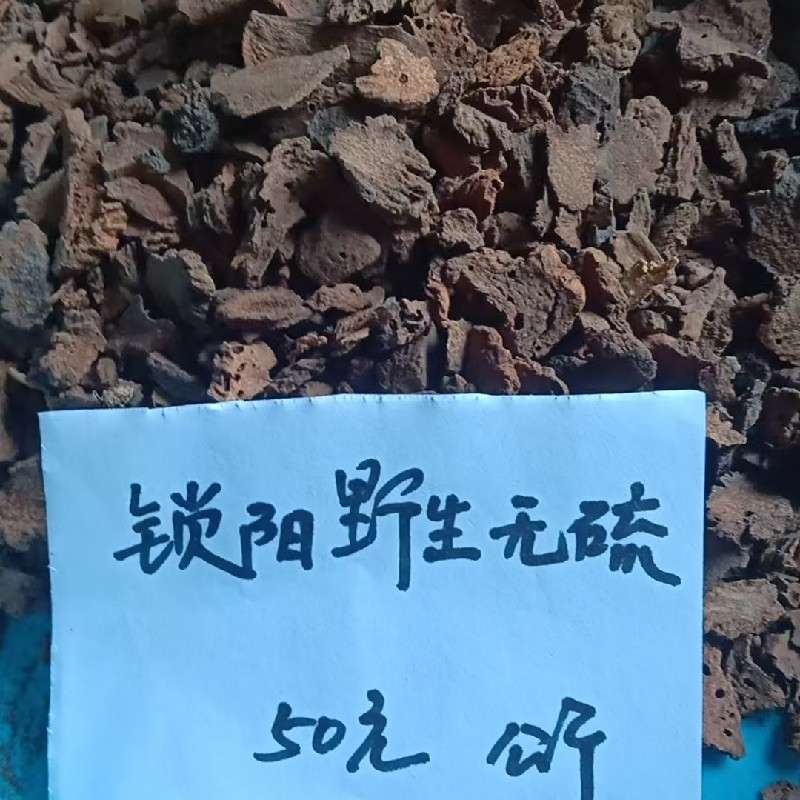 锁阳野生无硫
50元 公斤